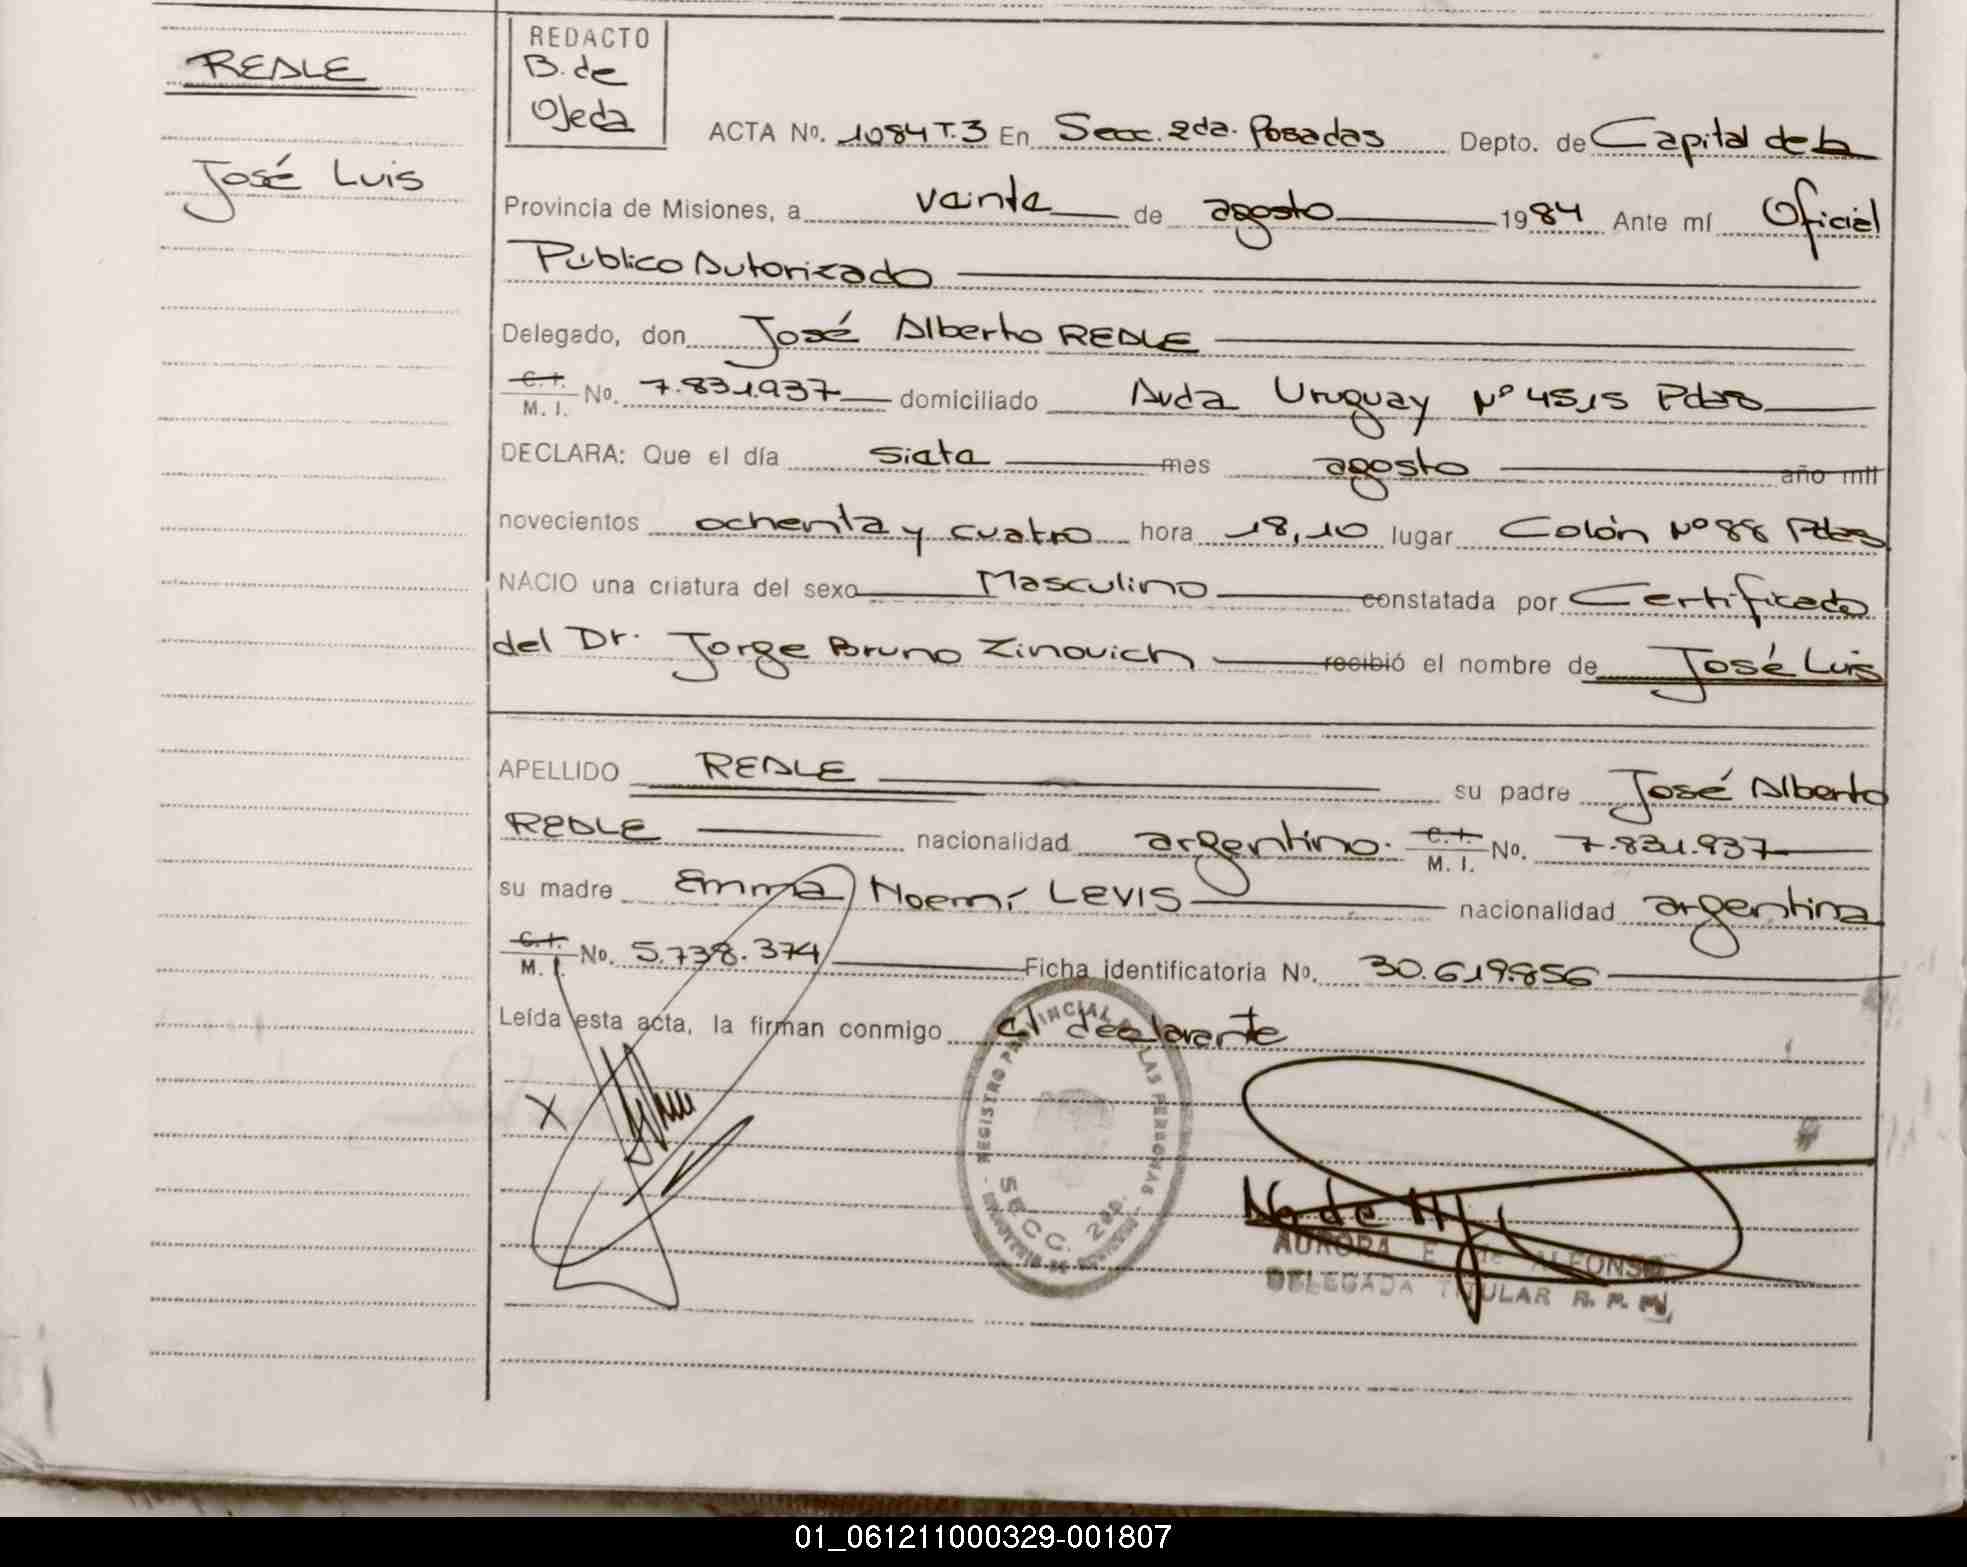 REALE
José Luis
REDACTO
B. de
Ojeda
ACTA No. 1084 T.3 En Secc. 2da. Posadas Depto. de Capital de la
Provincia de Misiones, a veinte de agosto 1984 Ante mí Oficial
Público Autorizado
Delegado, don José Alberto REALE
C.I. M. I. No. 7.831.937 domiciliado Avda Uruguay Nº 4515 Pdas
DECLARA: Que el día siete mes agosto año mil
novecientos ochenta y cuatro hora 18,10 lugar Colón Nº 88 Pdas
NACIO una criatura del sexo Masculino constatada por Certificado
del Dr. Jorge Bruno Zinovich recibió el nombre de José Luis
APELLIDO REALE su padre José Alberto
REALE nacionalidad argentino. C.I. M. I. No. 7.831.937
su madre Emma Noemí LEVIS nacionalidad argentina
C.I. M. I. No. 5.738.374 Ficha identificatoria No. 30.619.856
Leída esta acta, la firman conmigo el declarante
X
REGISTRO PROVINCIAL DE LAS PERSONAS
SECC. 2da.
AURORA E. de ALFONSO
DELEGADA TITULAR R. P. M.
01_061211000329-001807